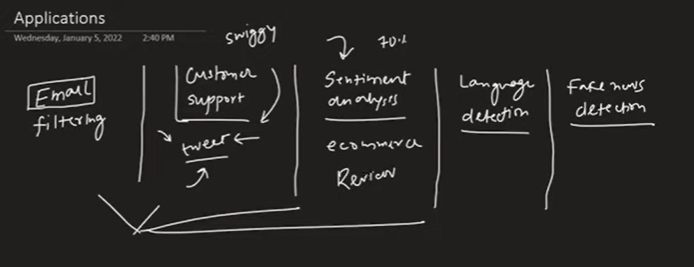 Applications
Wednesday, January 5, 2022 2:40 PM
swiggy
70%
Email
filtering
Customer
support
tweet
Sentiment
analysis
ecommerce
Review
Language
detection
Fake news
detection